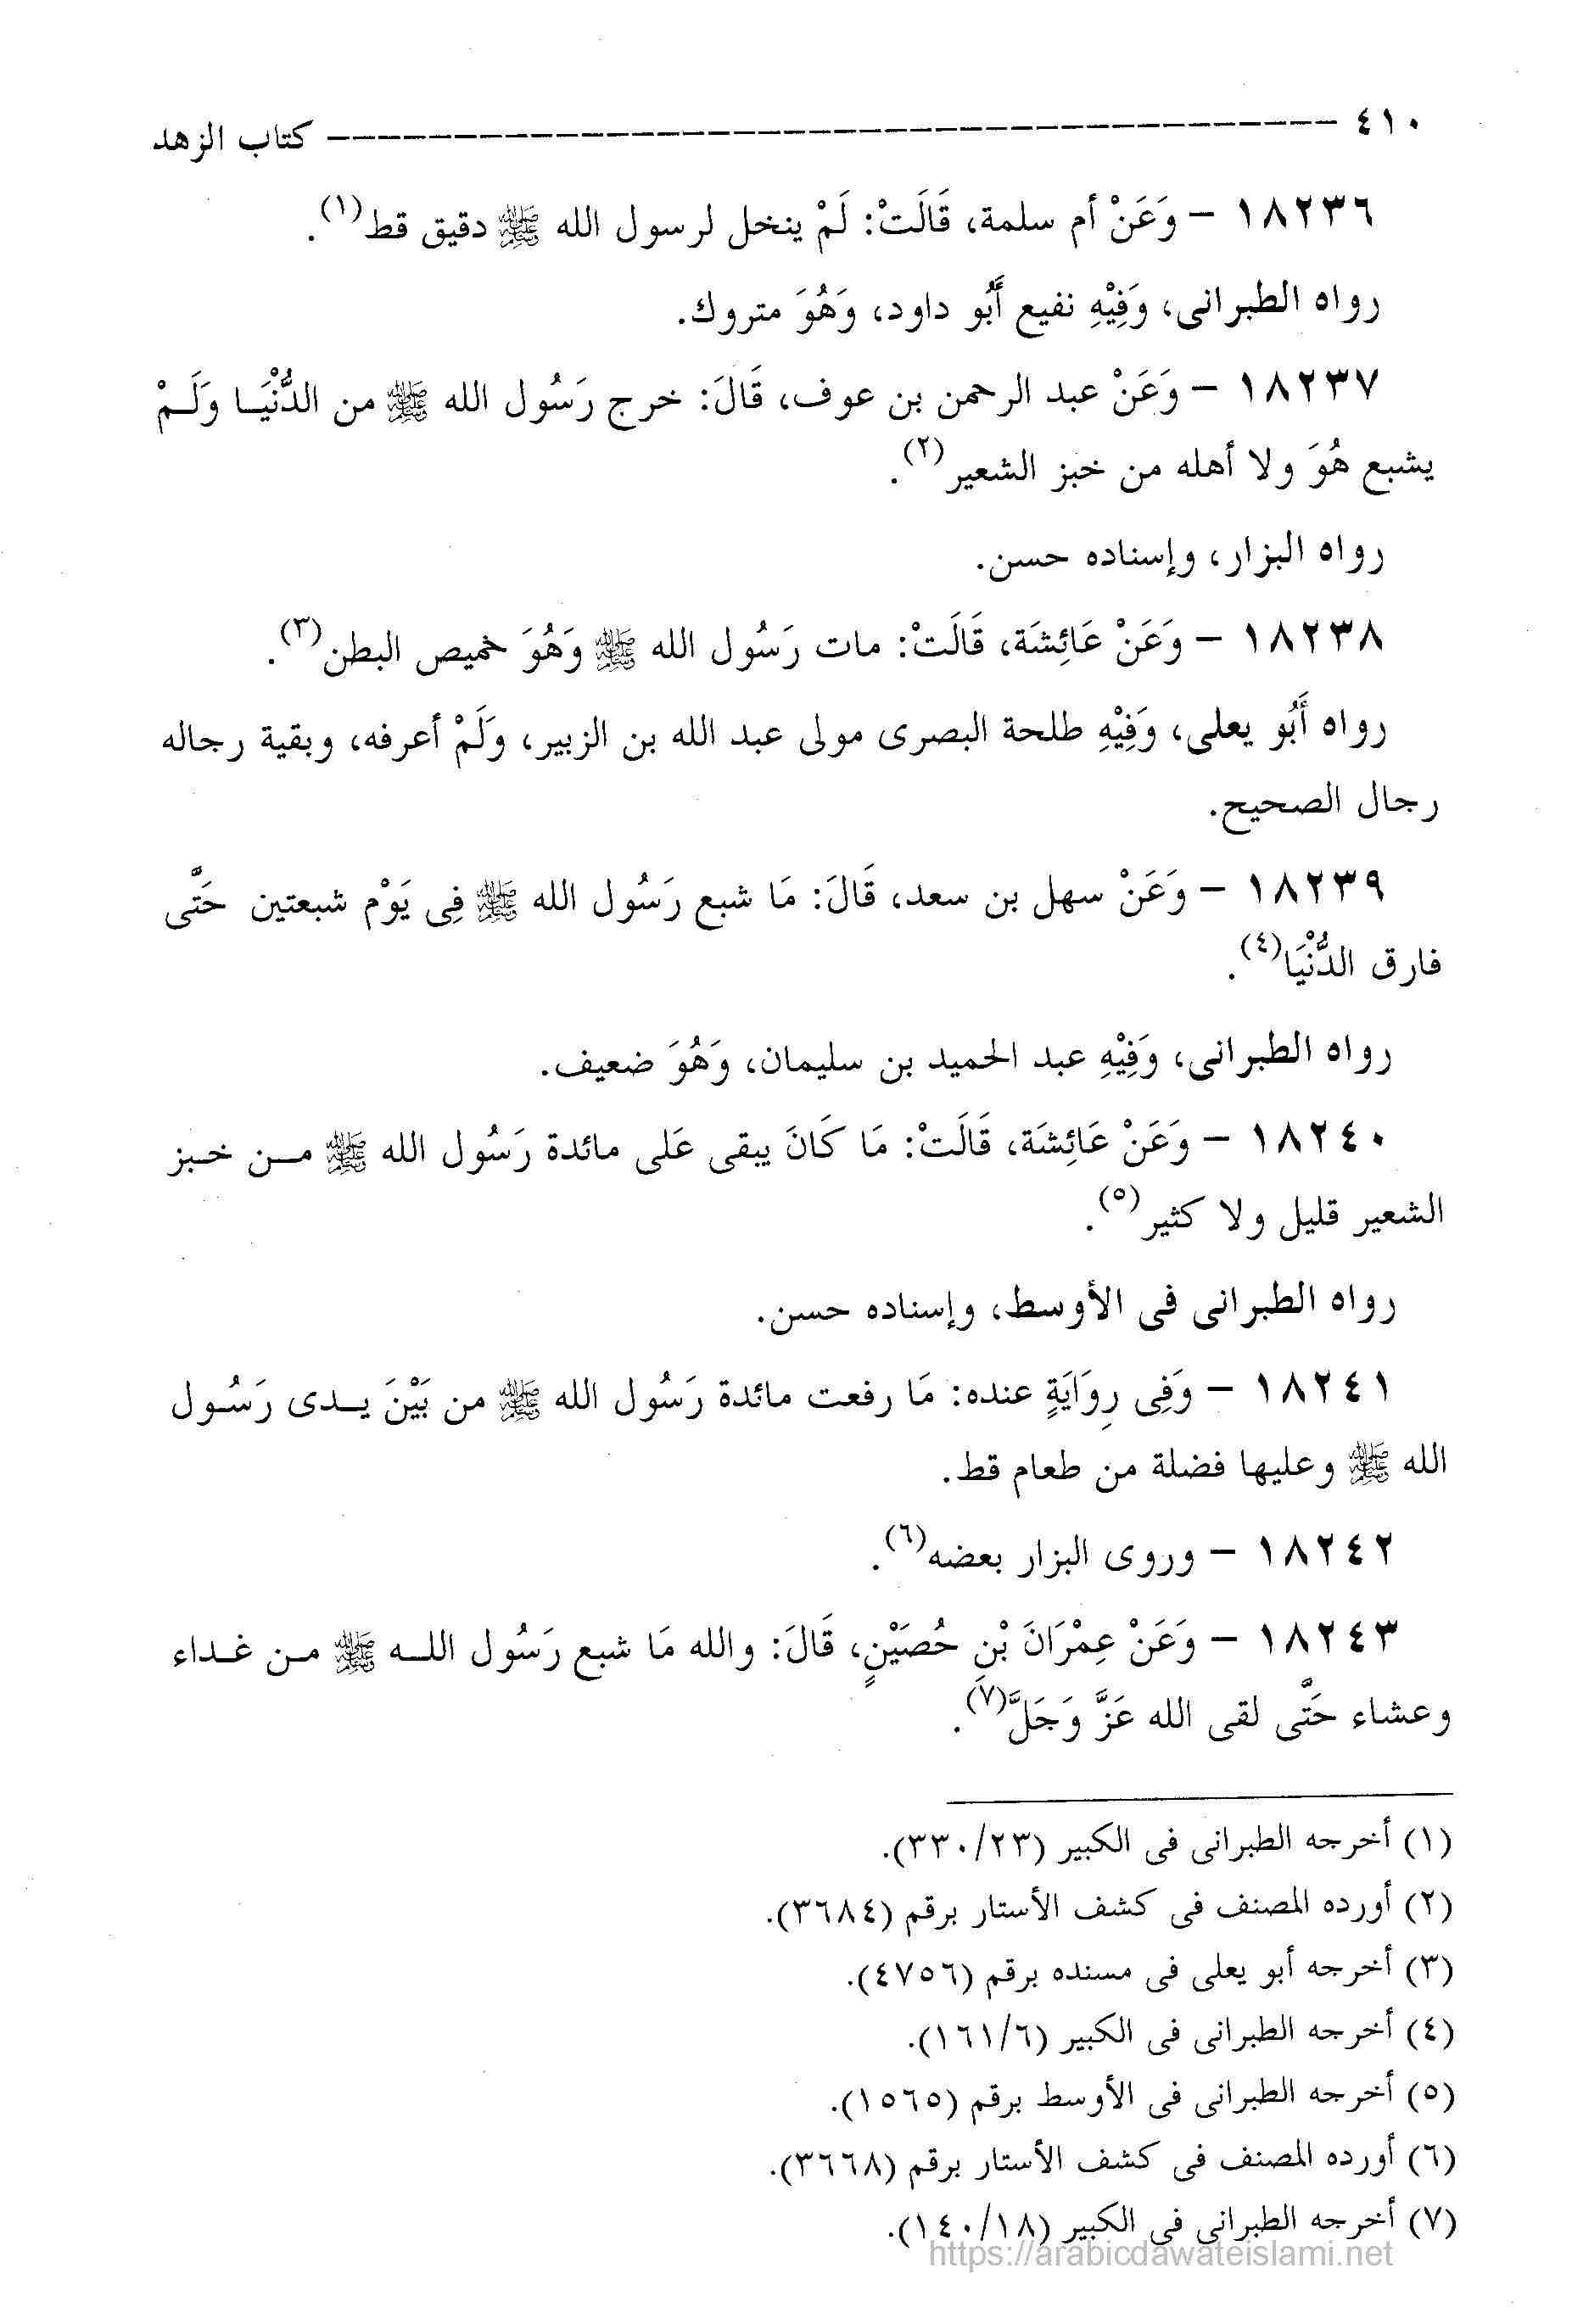 ٤١٠ ــــــــــــــــــــــــــــــــــــــــ كتاب الزهد
١٨٢٣٦ – وَعَنْ أم سلمة، قَالَتْ: لَمْ ينخل لرسول الله ﷺ دقيق قط(١).
رواه الطبرانى، وَفِيْهِ نفيع أَبُو داود، وَهُوَ متروك.
١٨٢٣٧ – وَعَنْ عبد الرحمن بن عوف، قَالَ: خرج رَسُول الله ﷺ من الدُّنْيَـا وَلَـمْ
يشبع هُوَ ولا أهله من خبز الشعير(٢).
رواه البزار، وإسناده حسن.
١٨٢٣٨ – وَعَنْ عَائِشَة، قَالَتْ: مات رَسُول الله ﷺ وَهُوَ خميص البطن(٣).
رواه أَبُو يعلى، وَفِيْهِ طلحة البصرى مولى عبد الله بن الزبير، وَلَمْ أعرفه، وبقية رجاله
رجال الصحيح.
١٨٢٣٩ – وَعَنْ سهل بن سعد، قَالَ: مَا شبع رَسُول الله ﷺ فِى يَوْم شبعتين حَتَّى
فارق الدُّنْيَا(٤).
رواه الطبرانى، وَفِيْهِ عبد الحميد بن سليمان، وَهُوَ ضعيف.
١٨٢٤٠ – وَعَنْ عَائِشَة، قَالَتْ: مَا كَانَ يبقى عَلى مائدة رَسُول الله ﷺ مـن خـبز
الشعير قليل ولا كثير(٥).
رواه الطبرانى فى الأوسط، وإسناده حسن.
١٨٢٤١ – وَفِى رِوَايَةٍ عنده: مَا رفعت مائدة رَسُول الله ﷺ من بَيْنَ يـدى رَسُـول
الله ﷺ وعليها فضلة من طعام قط.
١٨٢٤٢ – وروى البزار بعضه(٦).
١٨٢٤٣ – وَعَنْ عِمْرَانَ بْنِ حُصَيْنٍ، قَالَ: والله مَا شبع رَسُول اللـه ﷺ مـن غـداء
وعشاء حَتَّى لقى الله عَزَّ وَجَلَّ(٧).
(١) أخرجه الطبرانى فى الكبير (٣٣٠/٢٣).
(٢) أورده المصنف فى كشف الأستار برقم (٣٦٨٤).
(٣) أخرجه أبو يعلى فى مسنده برقم (٤٧٥٦).
(٤) أخرجه الطبرانى فى الكبير (١٦١/٦).
(٥) أخرجه الطبرانى فى الأوسط برقم (١٥٦٥).
(٦) أورده المصنف فى كشف الأستار برقم (٣٦٦٨).
(٧) أخرجه الطبرانى فى الكبير (١٤٠/١٨).
https://arabicdawateislami.net